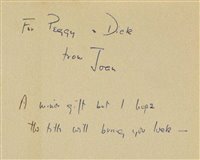 For Peggy + Dick
from Joan
A minor gift but I hope
the title will bring you luck —